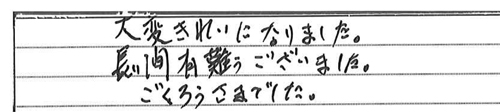 大変きれいになりました。
長い間有難うございました。
ごくろうさまでした。